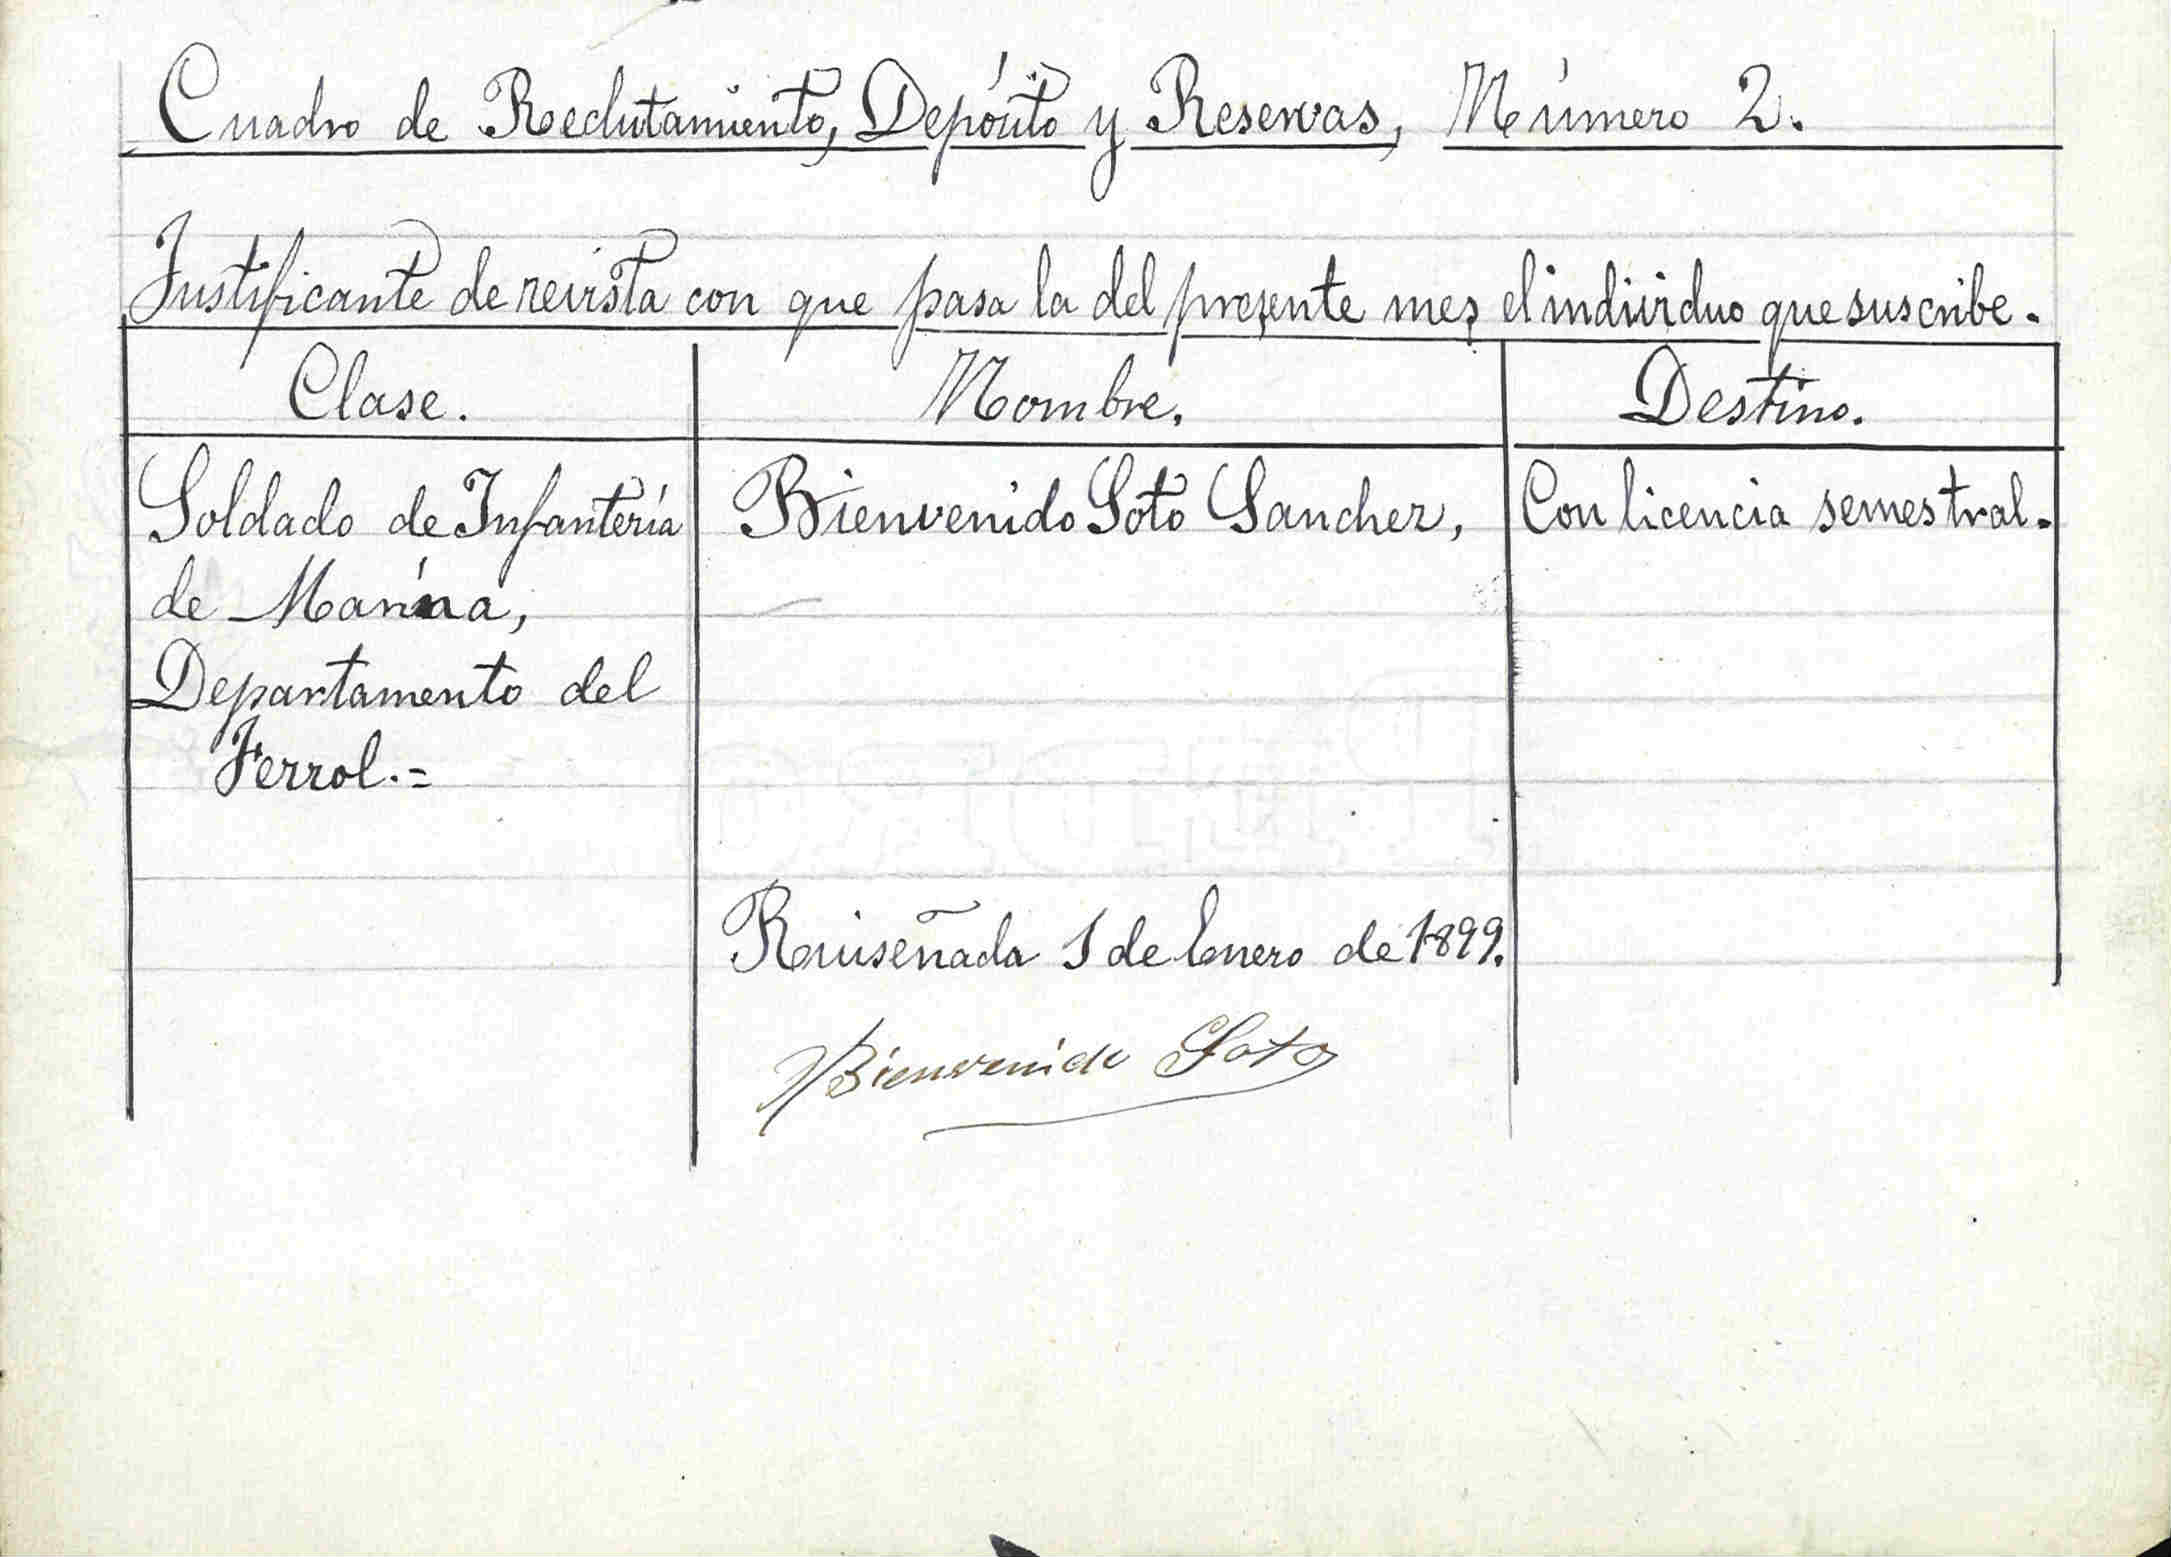 Cuadro de Reclutamiento, Depósito y Reservas, Número 2.
Justificante de revista con que pasa la del presente mes el individuo que suscribe.
Clase. Nombre. Destino.
Soldado de Infantería Bienvenido Soto Sanchez, Con licencia semestral.
de Marina,
Departamento del
Ferrol.=
Ruiseñada 1 de Enero de 1899.
Bienvenido Soto